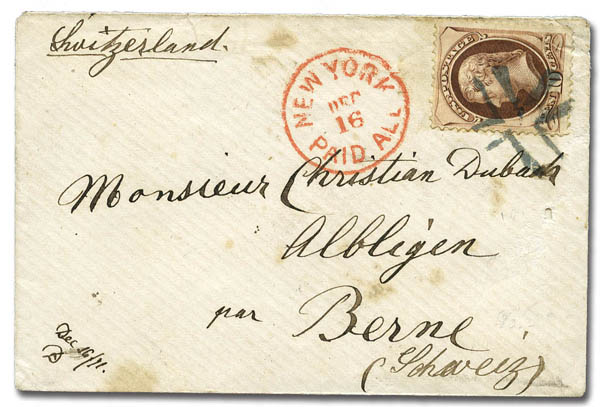 Switzerland.
NEW YORK
DEC
16
PAID ALL
Monsieur Christian Dubach
Albligen
par Berne
(Schweiz)
Dec 16/71.